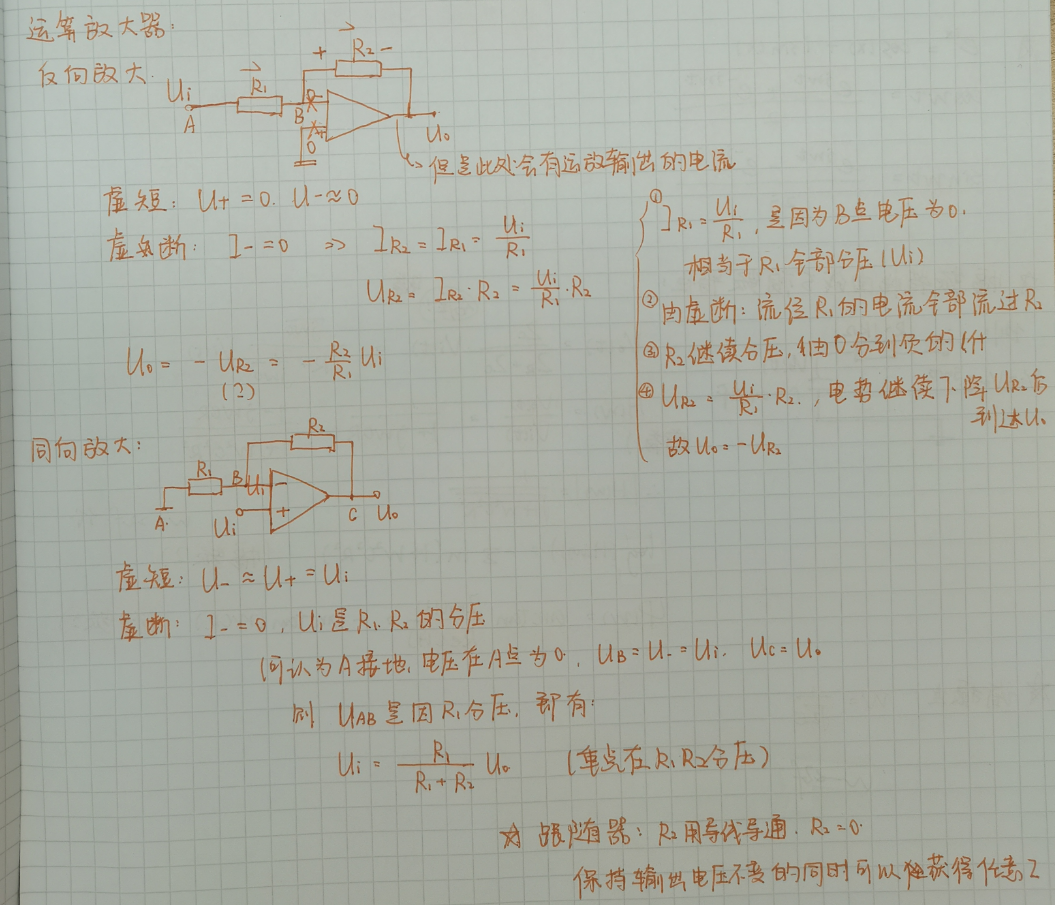 运算放大器:
反向放大.
Ui
A
R₁
B
+ R₂ -
0
U₀
但是此处会有运放输出的电流
虚短: U+ = 0. U- ≈ 0
虚断: I- = 0 => I_R₂ = I_R₁ = Ui/R₁
U_R₂ = I_R₂ · R₂ = Ui/R₁ · R₂
U₀ = - U_R₂ = - R₂/R₁ Ui
(2)
① I_R₁ = Ui/R₁, 是因为B点电压为0.
相当于R₁全部分压(Ui)
② 由虚断: 流经R₁的电流全部流过R₂
③ R₂继续分压, 由0分到负的
④ U_R₂ = Ui/R₁ · R₂, 电势继续下降U_R₂后
到达U₀
故U₀ = -U_R₂
同向放大:
R₁
R₂
B
Ui -
A.
Ui
+
C
U₀
虚短: U- ≈ U+ = Ui
虚断: I- = 0, Ui是R₁.R₂的分压
(可认为A接地, 电压在A点为0, U_B = U- = Ui, U_C = U₀
则 U_AB是因R₁分压, 即有:
Ui = R₁/(R₁+R₂) U₀ (重点在R₁R₂分压)
☆ 跟随器: R₂用导线导通. R₂=0.
保持输出电压不变的同时可以获得任意I